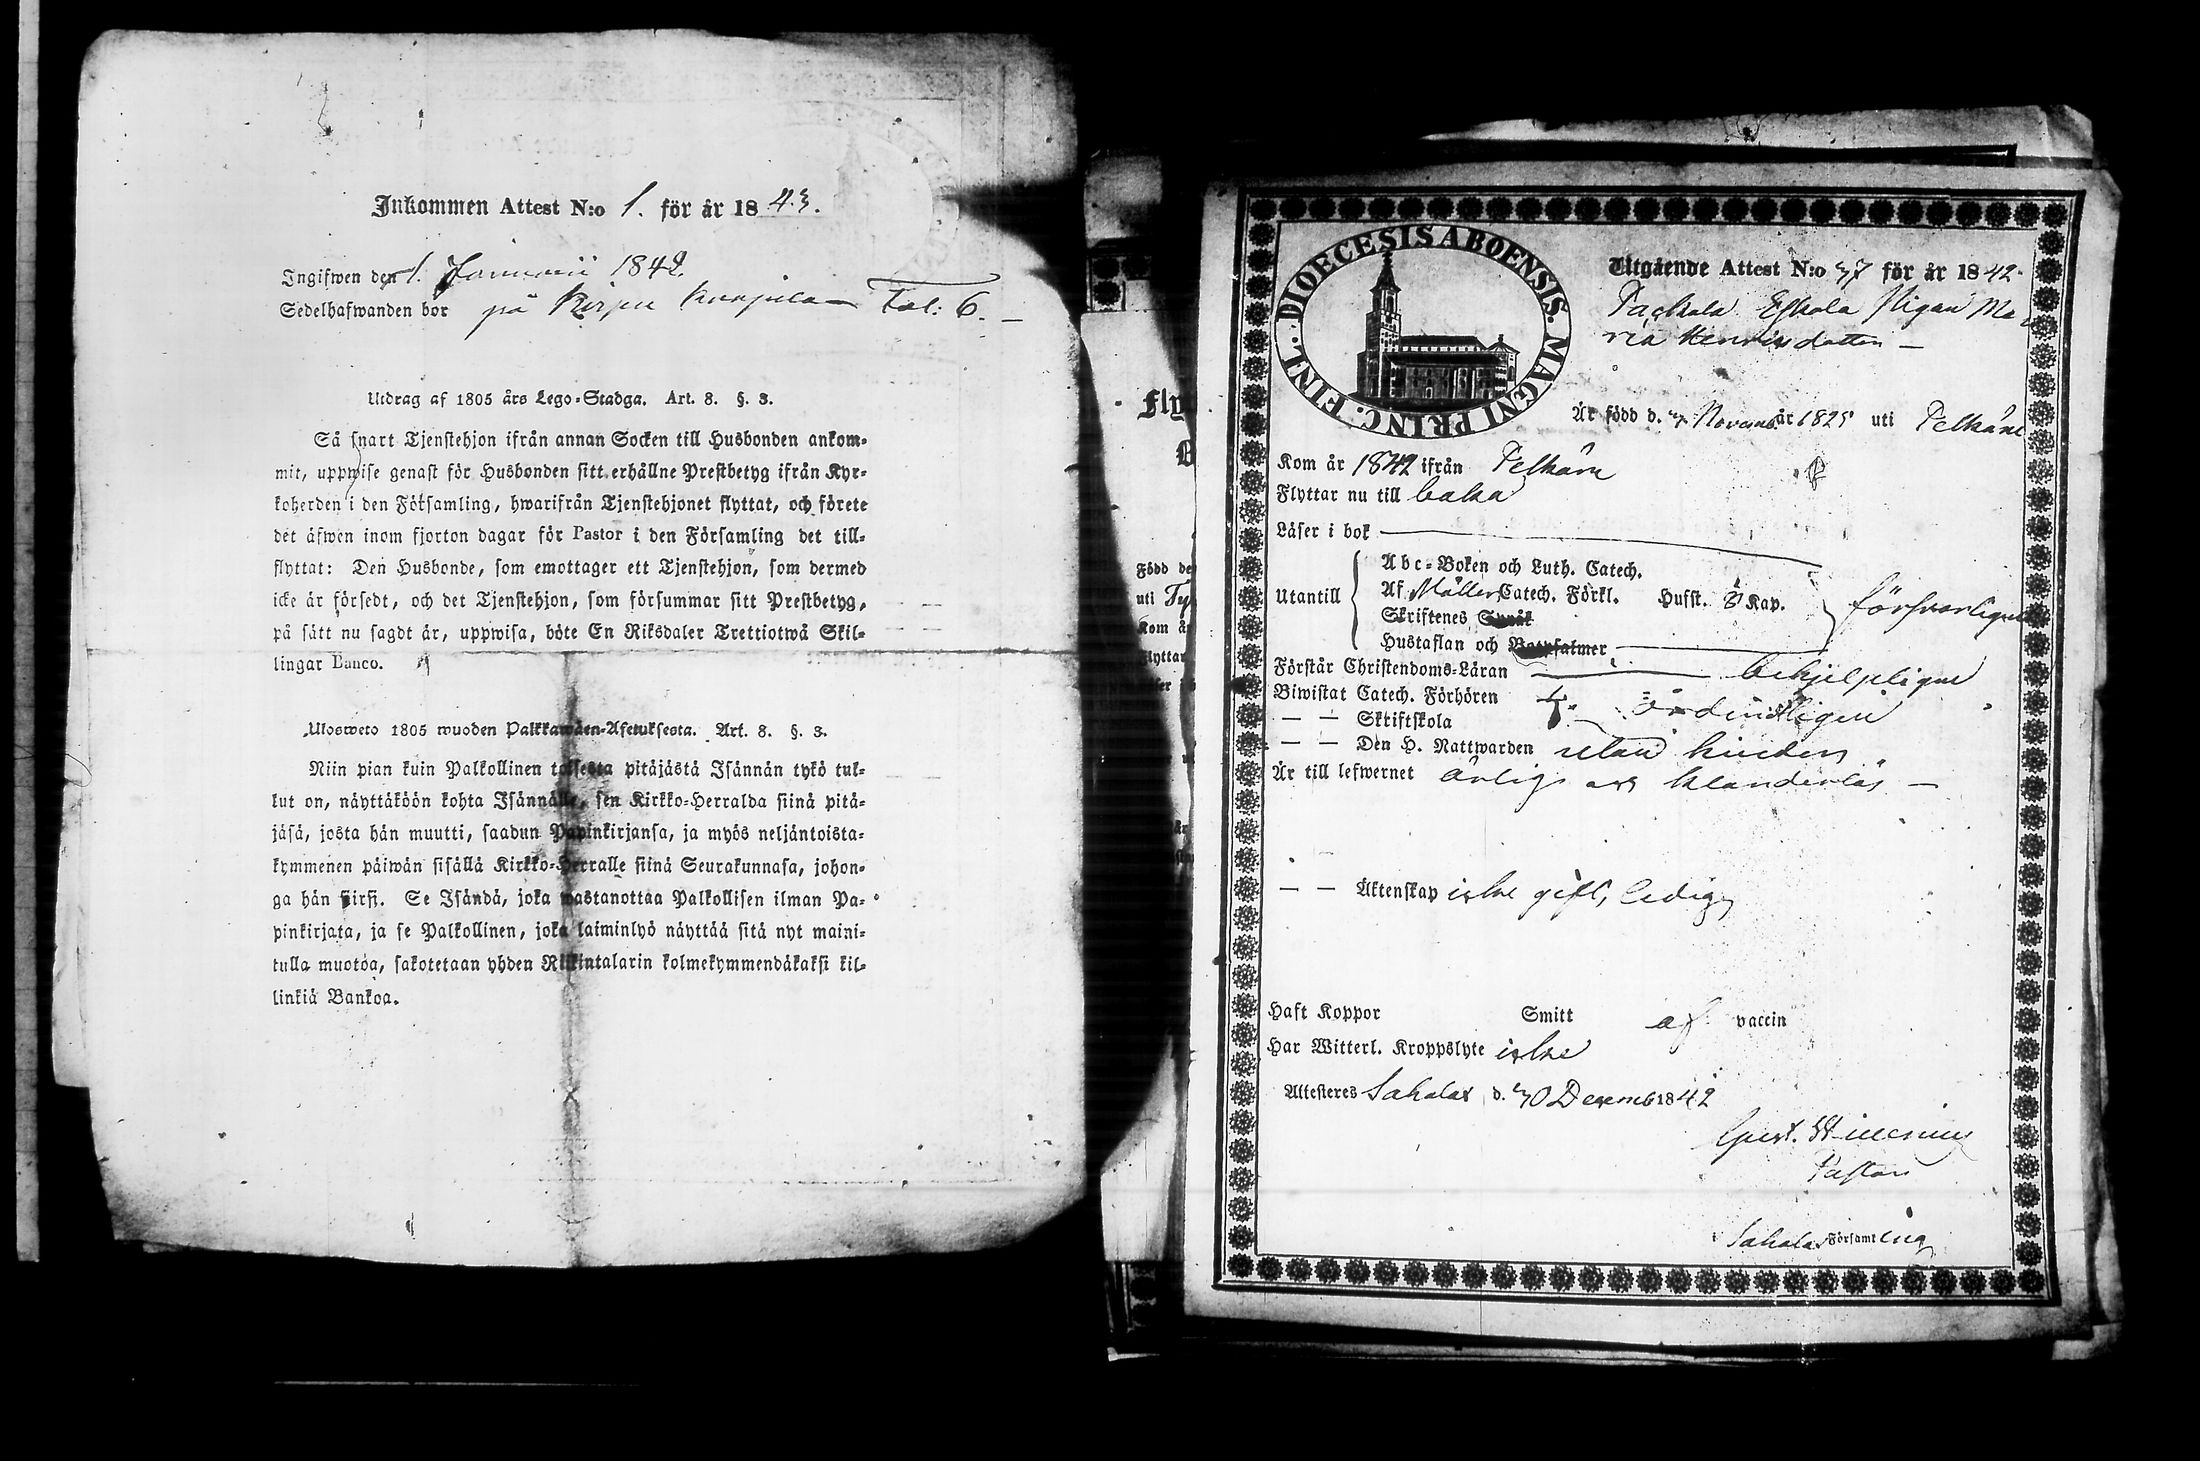 Inkommen Attest N:o 1. för år 1843.
Ingifwen den 1. Januarii 1842.
Sedelhafwanden bor på Fol: 6.
Utdrag af 1805 års Lego-Stadga. Art. 8. §. 3.
Så snart Tjenstehjon ifrån annan Socken till Husbonden ankom-
mit, uppwise genast för Husbonden sitt erhållne Prestbetyg ifrån Kyr-
koherden i den Församling, hwarifrån Tjenstehjonet flyttat, och förete
det äfwen inom fjorton dagar för Pastor i den Församling det till-
flyttat: Den Husbonde, som emottager ett Tjenstehjon, som dermed
icke är försedt, och det Tjenstehjon, som försummar sitt Prestbetyg,
på sätt nu sagdt är, uppwisa, böte En Riksdaler Trettiotwå Skil-
lingar Banco.
Ulosweto 1805 wuoden Palkkawäen-Asetuksesta. Art. 8. §. 3.
Niin pian kuin Palkollinen toisesta pitäjästä Isännän tykö tul-
lut on, näyttäköön kohta Isännälle, sen Kirkko-Herralda siinä pitä-
jäsä, josta hän muutti, saadun Papinkirjansa, ja myös neljäntoista-
kymmenen päiwän sisällä Kirkko-Herralle siinä Seurakunnasa, johon-
ga hän siirsi. Se Isändä, joka wastanottaa Palkollisen ilman Pa-
pinkirjata, ja se Palkollinen, joka laiminlyö näyttää sitä nyt maini-
tulla muotoa, sakotetaan yhden Riikintalarin kolmekymmendäkaksi kil-
linkiä Bankoa.
DIOECESIS ABOENSIS. MAGNI PRINC. FINL.
Utgående Attest N:o 37 för år 1842.
Eskola Pigan Ma
ria Henricsdotter
Är född d. 7 Novemb år 1825 uti Pelkäne
Kom år 1842 ifrån Pelkäne
Flyttar nu till baka
Läser i bok
Utantill
Abc-Boken och Luth. Catech.
Af Möllers Catech. Förkl. Husst. 8 Kap. försvarligen
Skriftenes Språk
Hustaflan och Botpsalmer
Förstår Christendoms-Läran behjelpligen
Biwistat Catech. Förhören ordentligen
— — Skriftskola
— — Den H. Nattwarden utan hinder
Är till lefwernet ärlig och klanderlös
— — Äktenskap icke gift, ledig
Haft Koppor Smitt af vaccin
Har Witterl. Kroppslyte icke
Attesteres Sahalax d. 30 Decemb 1842
Pastor
i Sahalax Församling
Fly
Född de
uti Ty
Kom å
Flyttar